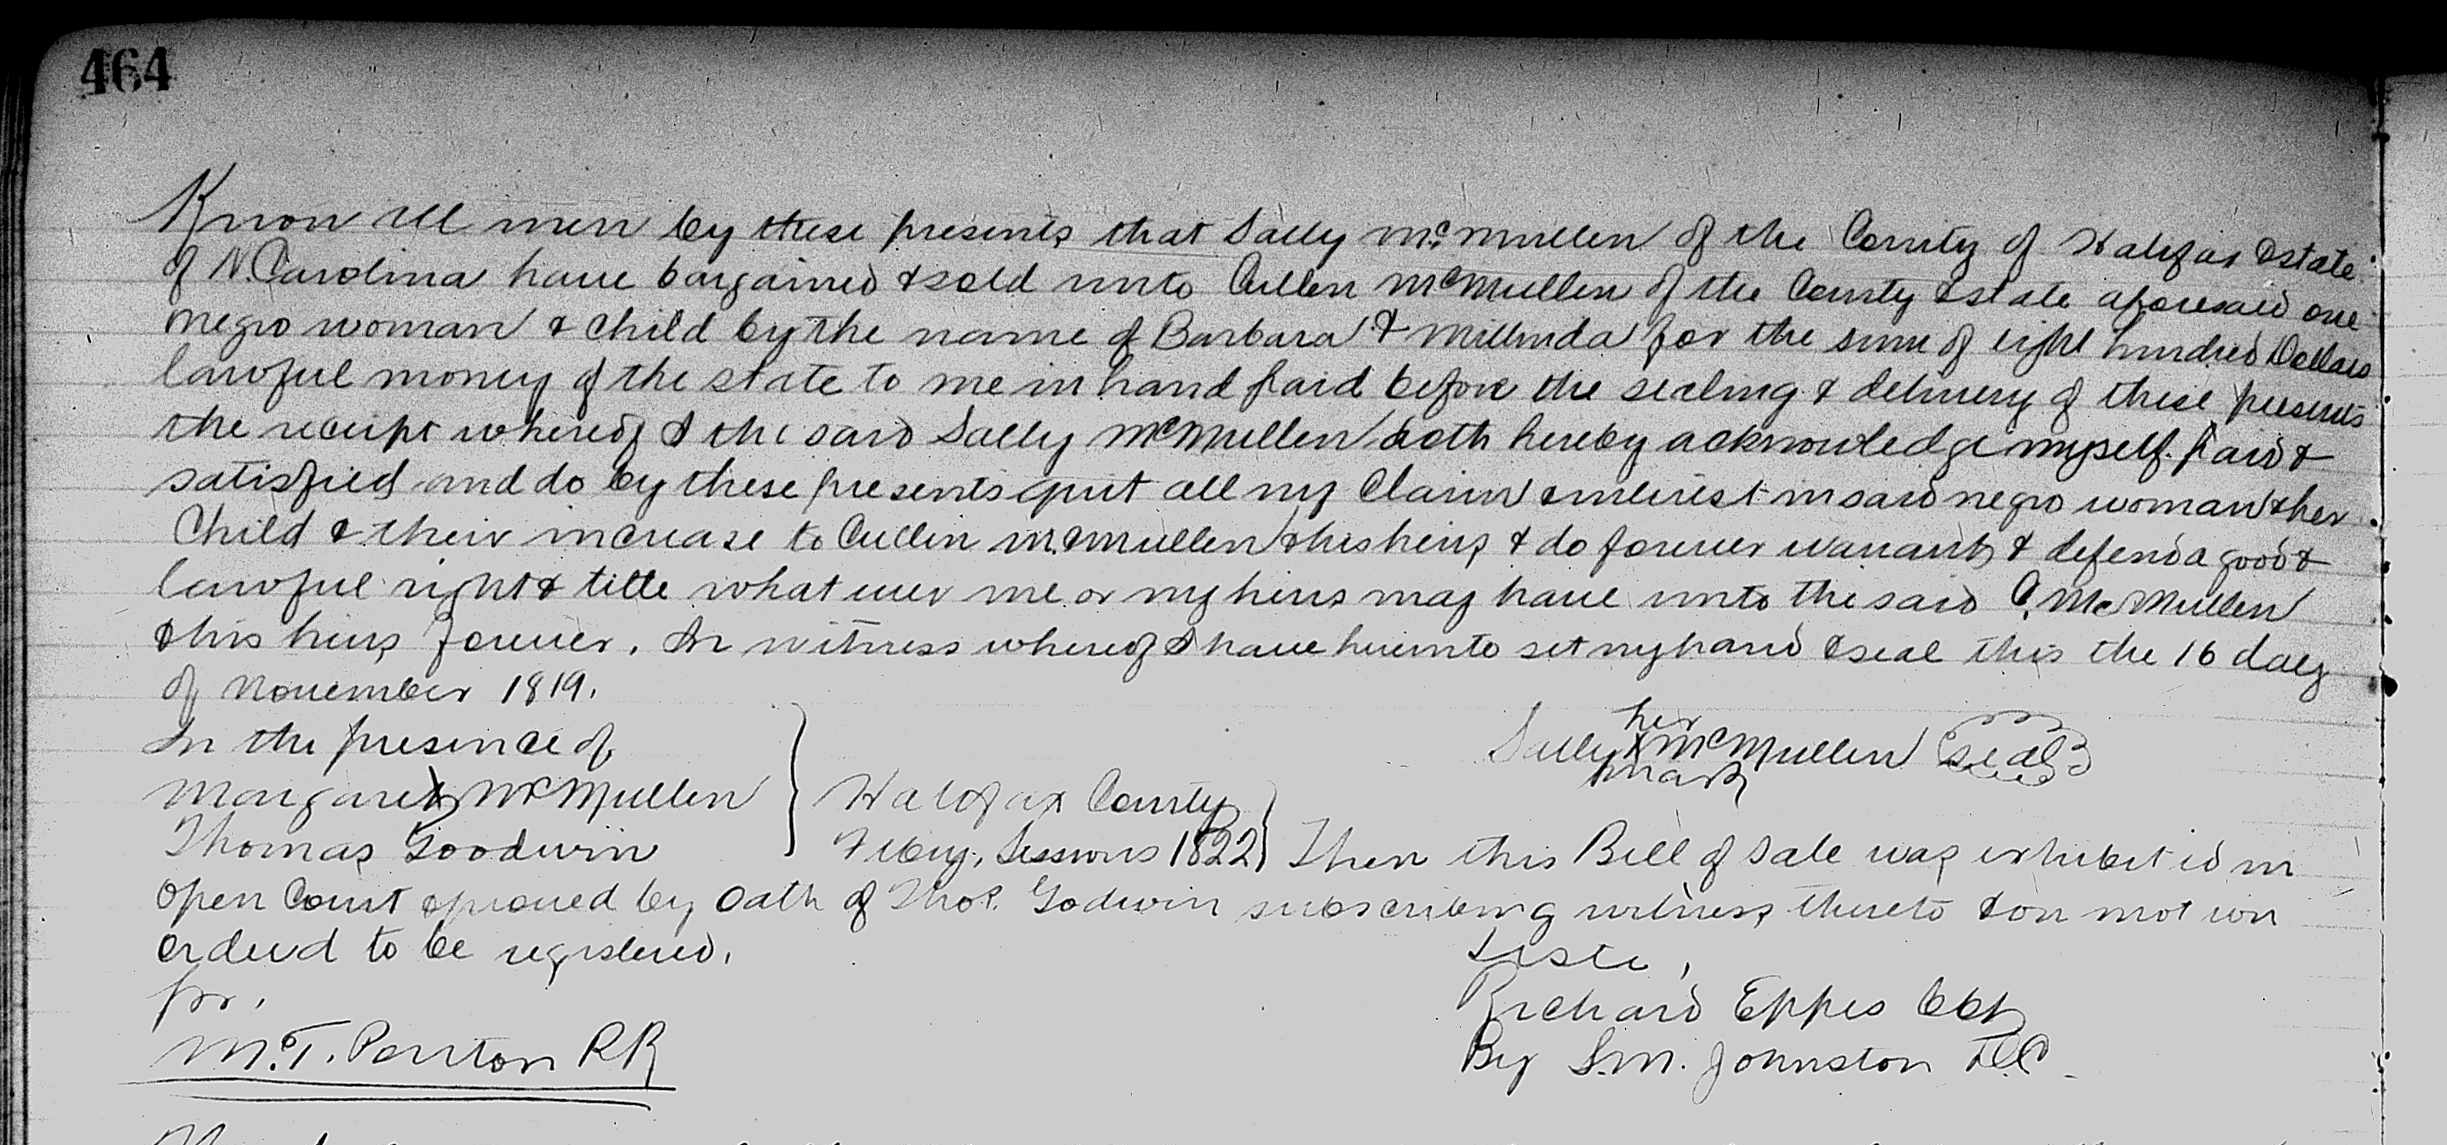 464
Know all men by these presents that Sally McMullen of the County of Halifax & state
of N. Carolina have bargained & sold unto Cullen McMullen of the County & state aforesaid one
negro woman & child by the name of Barbara & Millinda for the sum of eight hundred Dollars
lawful money of the state to me in hand paid before the sealing & delivery of these presents
the receipt whereof I the said Sally McMullen doth hereby acknowledge myself paid &
satisfied and do by these presents quit all my Claim & interest in said negro woman & her
Child & their increase to Cullin McMullen & his heirs & do forever warrant & defend a good &
lawful right & title what ever me or my heirs may have unto the said C. McMullen
& his heirs forever. In witness whereof I have hereunto set my hand & seal this the 16 day
of November 1819.
In the presence of
her
Sally X McMullen seal
mark
Margaret X McMullen
Thomas Goodwin
Halifax County
Feby. Sessions 1822 Then this Bill of sale was exhibited in
open Court & proved by oath of Thos. Godwin subscribing witness thereto & on motion
ordered to be registered.
Teste,
pr.
Richard Eppes CCt
By S.M. Johnston D.C.
M.T. Ponton RR